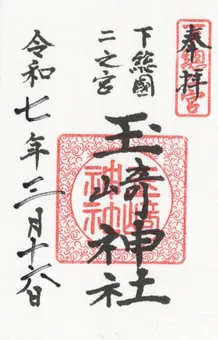 奉拝
下総國
二之宮
玉﨑神社
令和七年三月十六日